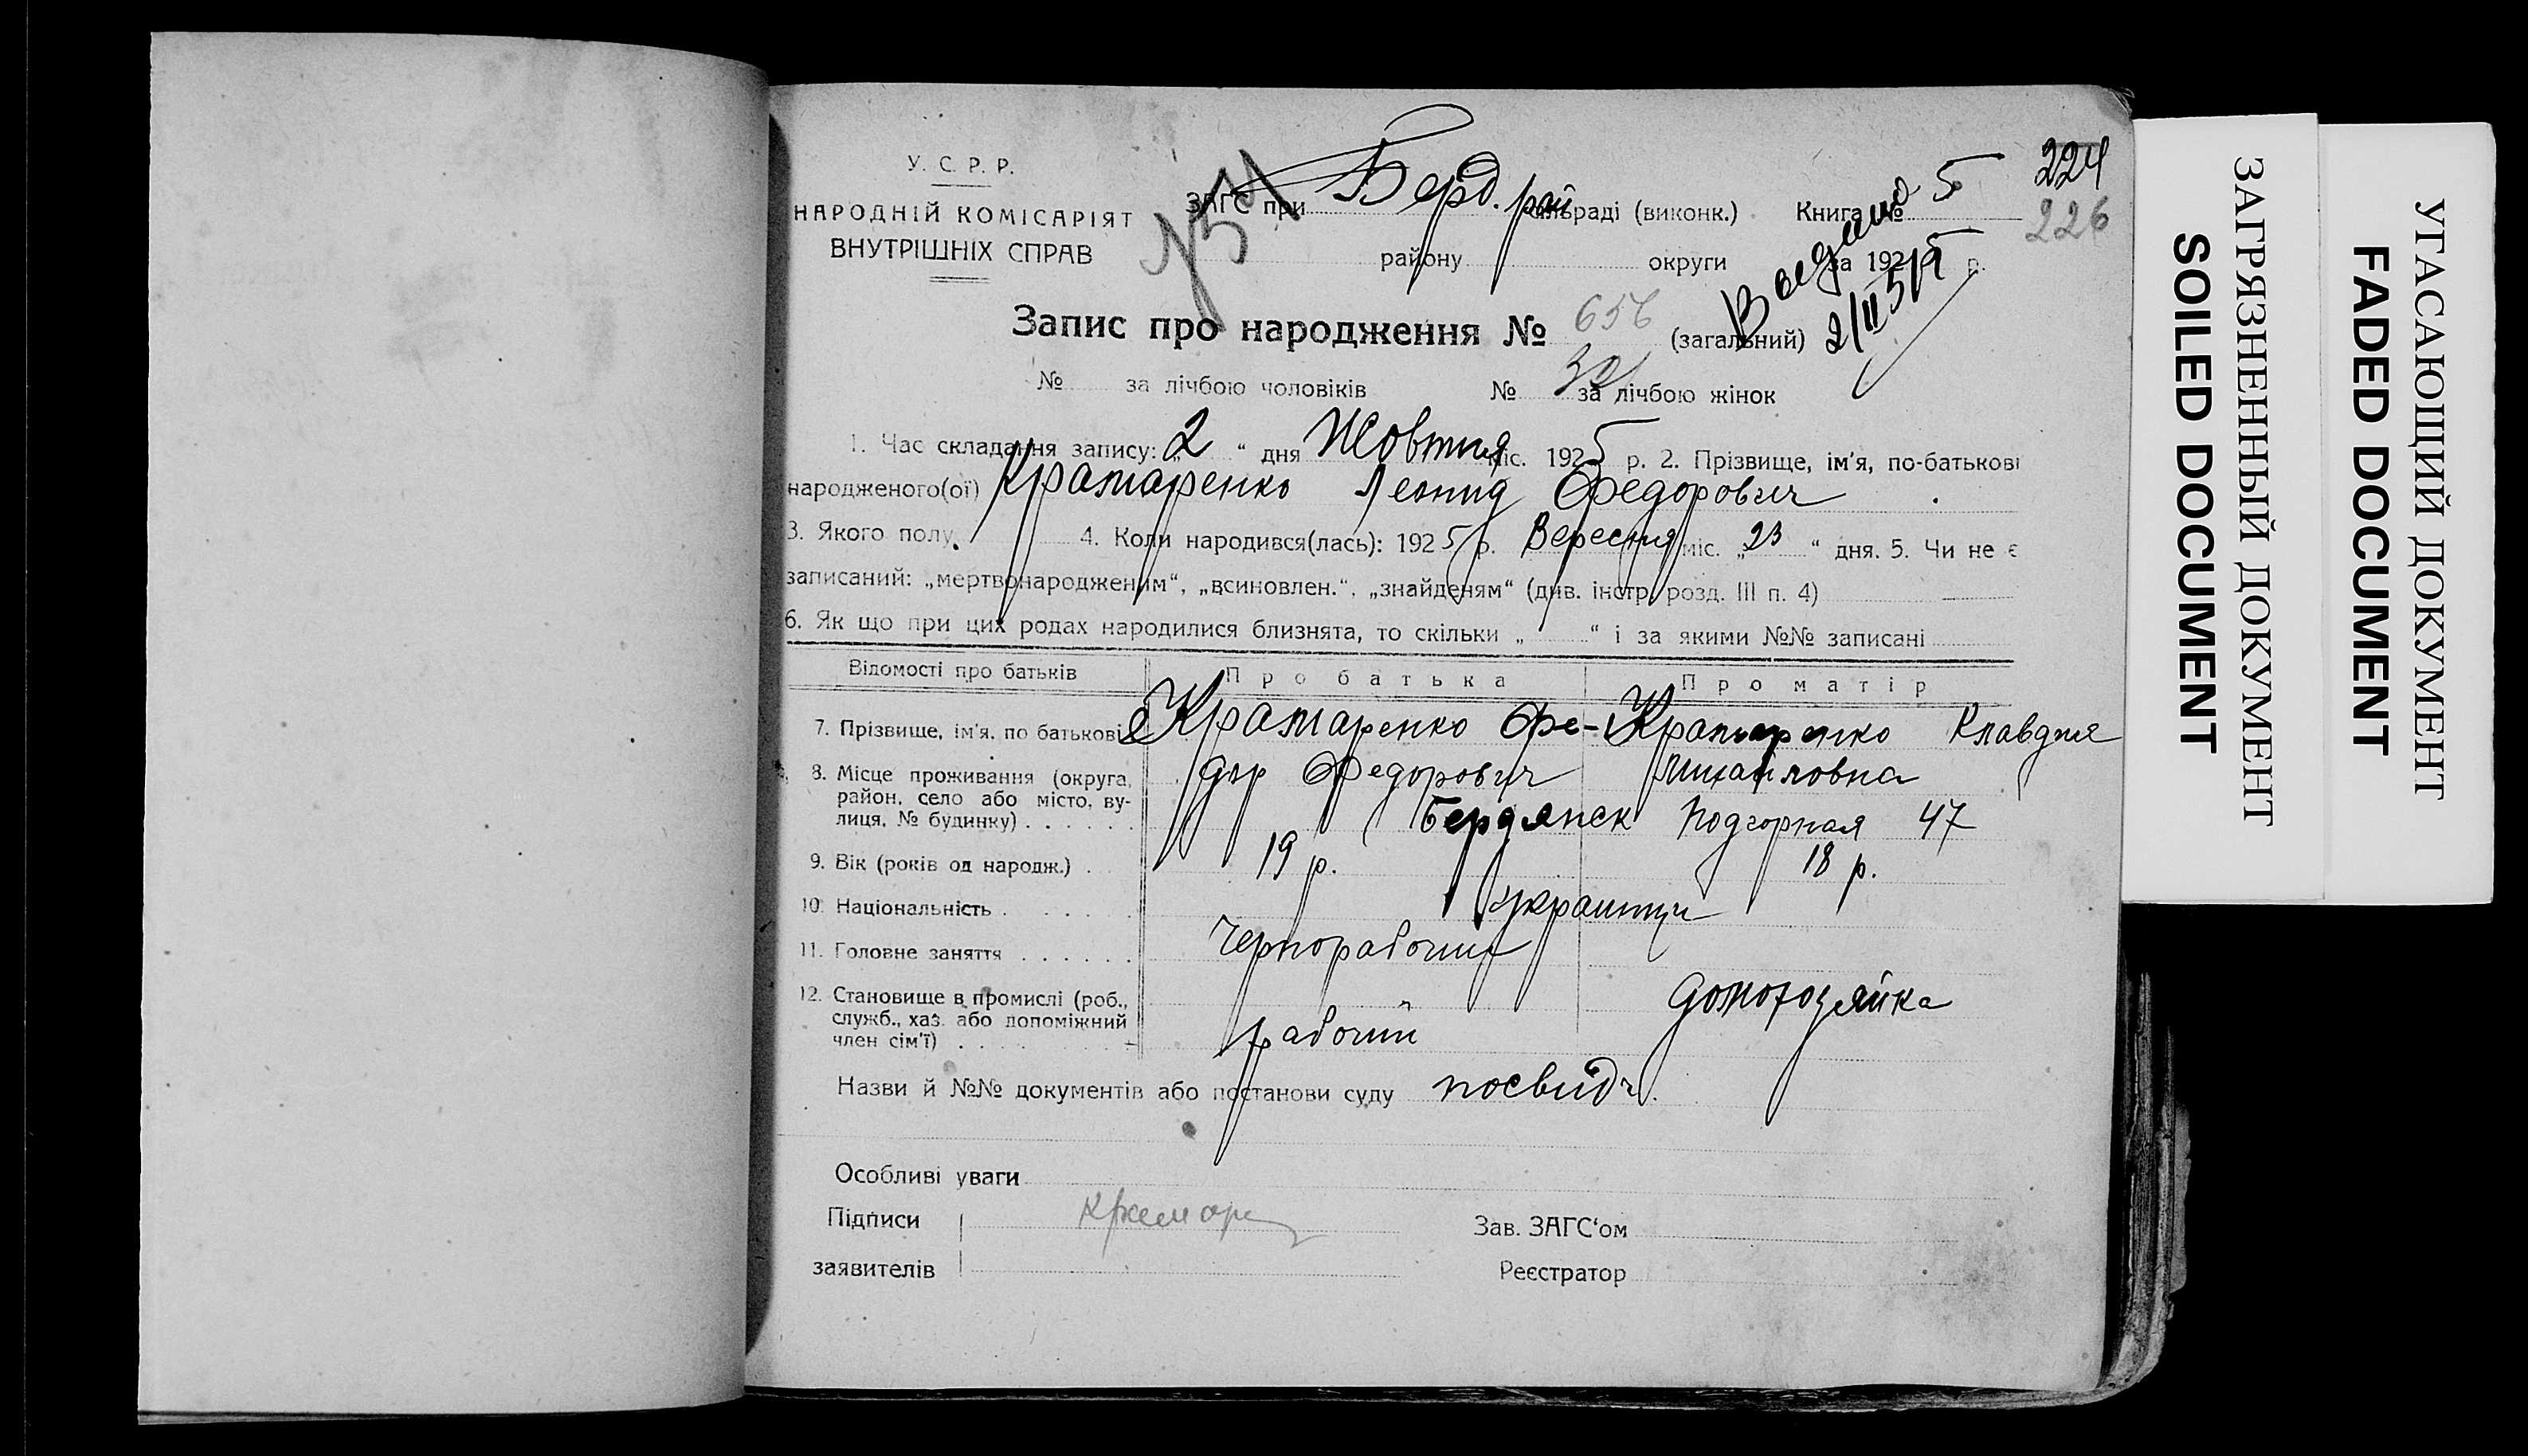 224
226
У. С. Р. Р.
НАРОДНІЙ КОМІСАРІЯТ
ВНУТРІШНІХ СПРАВ
ЗАГС при Берд. рай сільраді (виконк.) Книга № 5
району округи за 1925 р.
Видано
Запис про народження № 656 (загальний)
№ за лічбою чоловіків № за лічбою жінок
1. Час складання запису: „2“ дня Жовтня міс. 1925 р. 2. Прізвище, ім'я, по-батькові
народженого(ої) Крамаренко Леонид Федорович
3. Якого полу 4. Коли народився(лась): 1925 р. Вересня міс. „23“ дня. 5. Чи не є
записаний: „мертвонародженим“, „всиновлен.“, „знайденям“ (див. інстр. розд. III п. 4)
6. Як що при цих родах народилися близнята, то скільки „ “ і за якими №№ записані
Відомості про батьків Про батька Про матір
7. Прізвище, ім'я, по батькові Крамаренко Фе- Крамаренко Клавдия
дор Федорович Михайловна
8. Місце проживання (округа,
район, село або місто, ву-
лиця, № будинку) . . . . . . Бердянск Подгорная 47
9. Вік (років од народж.) . 19 р. 18 р.
10. Національність . . . . . українці
11. Головне заняття . . . . . . Чернорабочий
12. Становище в промислі (роб.,
служб., хаз. або допоміжний
член сім'ї) . . . . . . рабочий домохозяйка
Назви й №№ документів або постанови суду посвидч.
Особливі уваги
Підписи Крамаре
Зав. ЗАГС'ом
заявителів
Реєстратор
ЗАГРЯЗНЕННЫЙ ДОКУМЕНТ
SOILED DOCUMENT
УГАСАЮЩИЙ ДОКУМЕНТ
FADED DOCUMENT